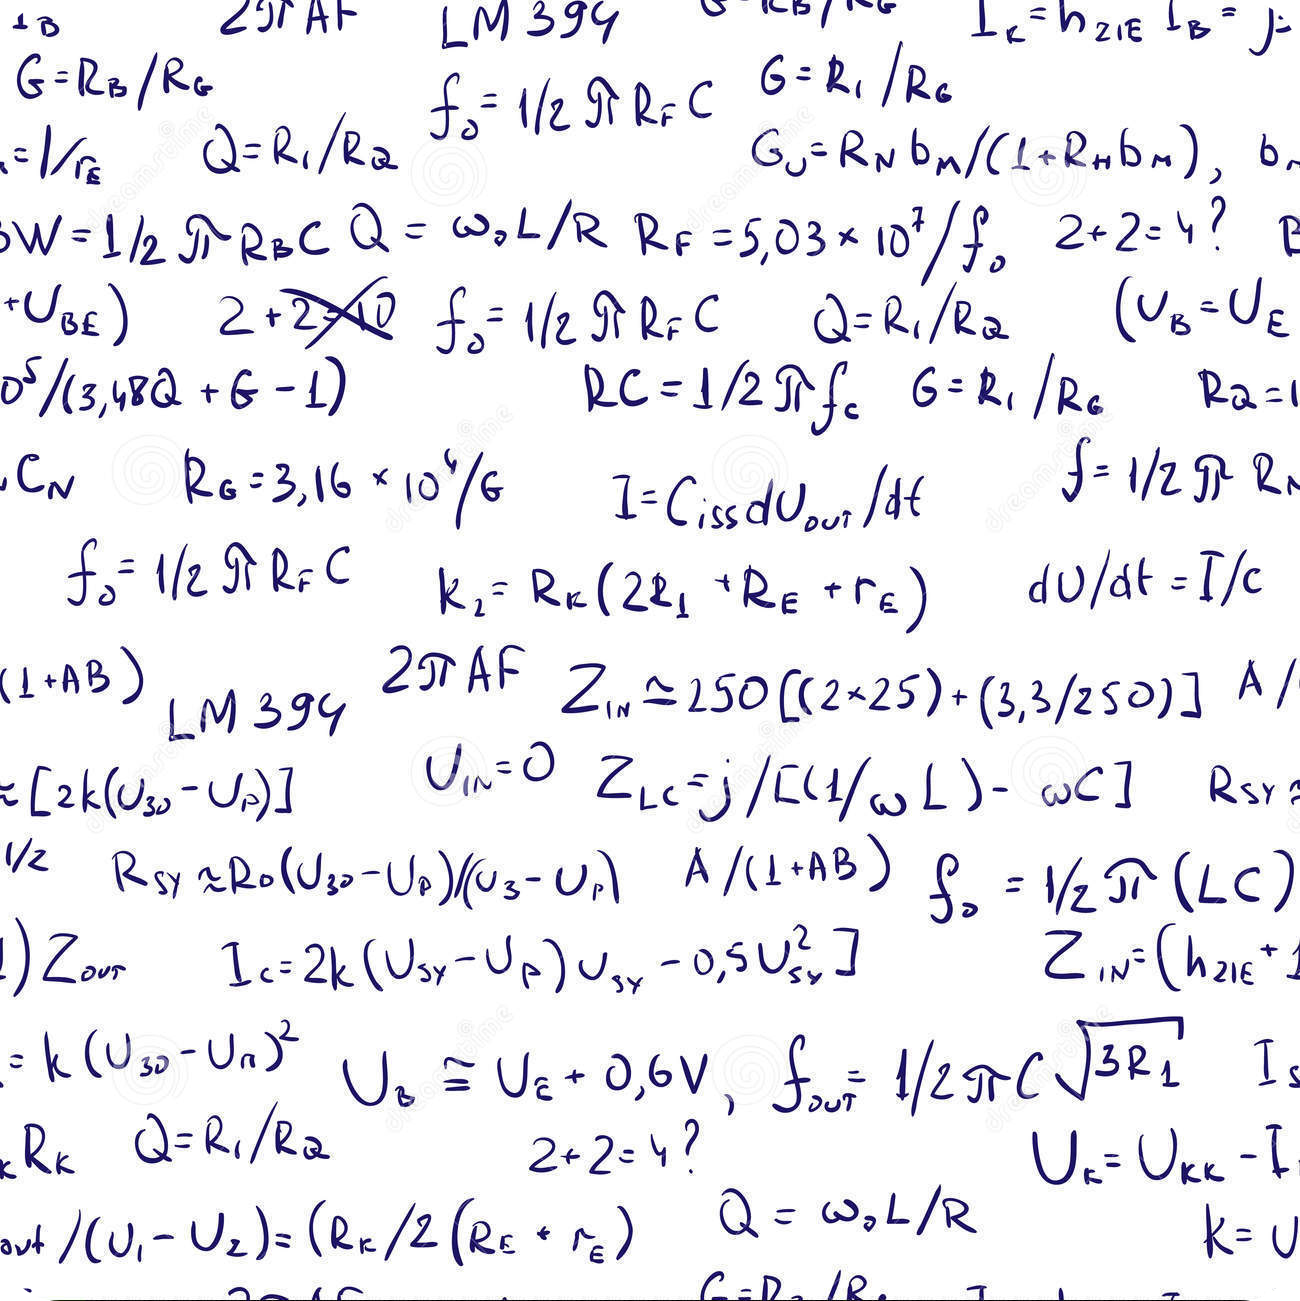 I_B 2πAF LM 394 G=R_B/R_G I_K=h_21E I_B= j=
G=R_B/R_G f_0=1/2πR_F C G=R_1/R_G
=1/r_E Q=R_1/R_Q G_U=R_N b_M/(1+R_N b_M), b_M
BW=1/2πR_B C Q = ω_0L/R R_F=5,03×10^7/f_0 2+2=4? B
+U_BE) 2+2=10 f_0=1/2πR_F C Q=R_1/R_Q (U_B=U_E
0^5/(3,48Q+G-1) RC=1/2πf_c G=R_1/R_G R_Q=1
C_N R_G=3,16×10^4/G I=C_iss dU_OUT/dt f=1/2πR_N
f_0=1/2πR_F C k_2=R_K(2R_1+R_E+r_E) dU/dt=I/c
(1+AB) LM 394 2πAF Z_IN≃250[(2×25)+(3,3/250)] A/
≈[2k(U_30-U_P)] U_IN=0 Z_LC=j/[(1/ωL)-ωC] R_SY≈
1/2 R_SY≈R_0(U_30-U_P)/(U_3-U_P) A/(1+AB) f_0=1/2π(LC)
1)Z_OUT I_C=2k(U_SY-U_P)U_SY-0,5U²_SY] Z_IN=(h_21E+1
=k(U_30-U_n)² U_B≅U_E+0,6V, f_OUT=1/2πC√3R_1 I_S
_K R_K Q=R_1/R_Q 2+2=4? U_K=U_KK-I
out/(U_1-U_2)=(R_K/2(R_E+r_E) Q = ω_0L/R k=U
2πAF G=R_B/R_G